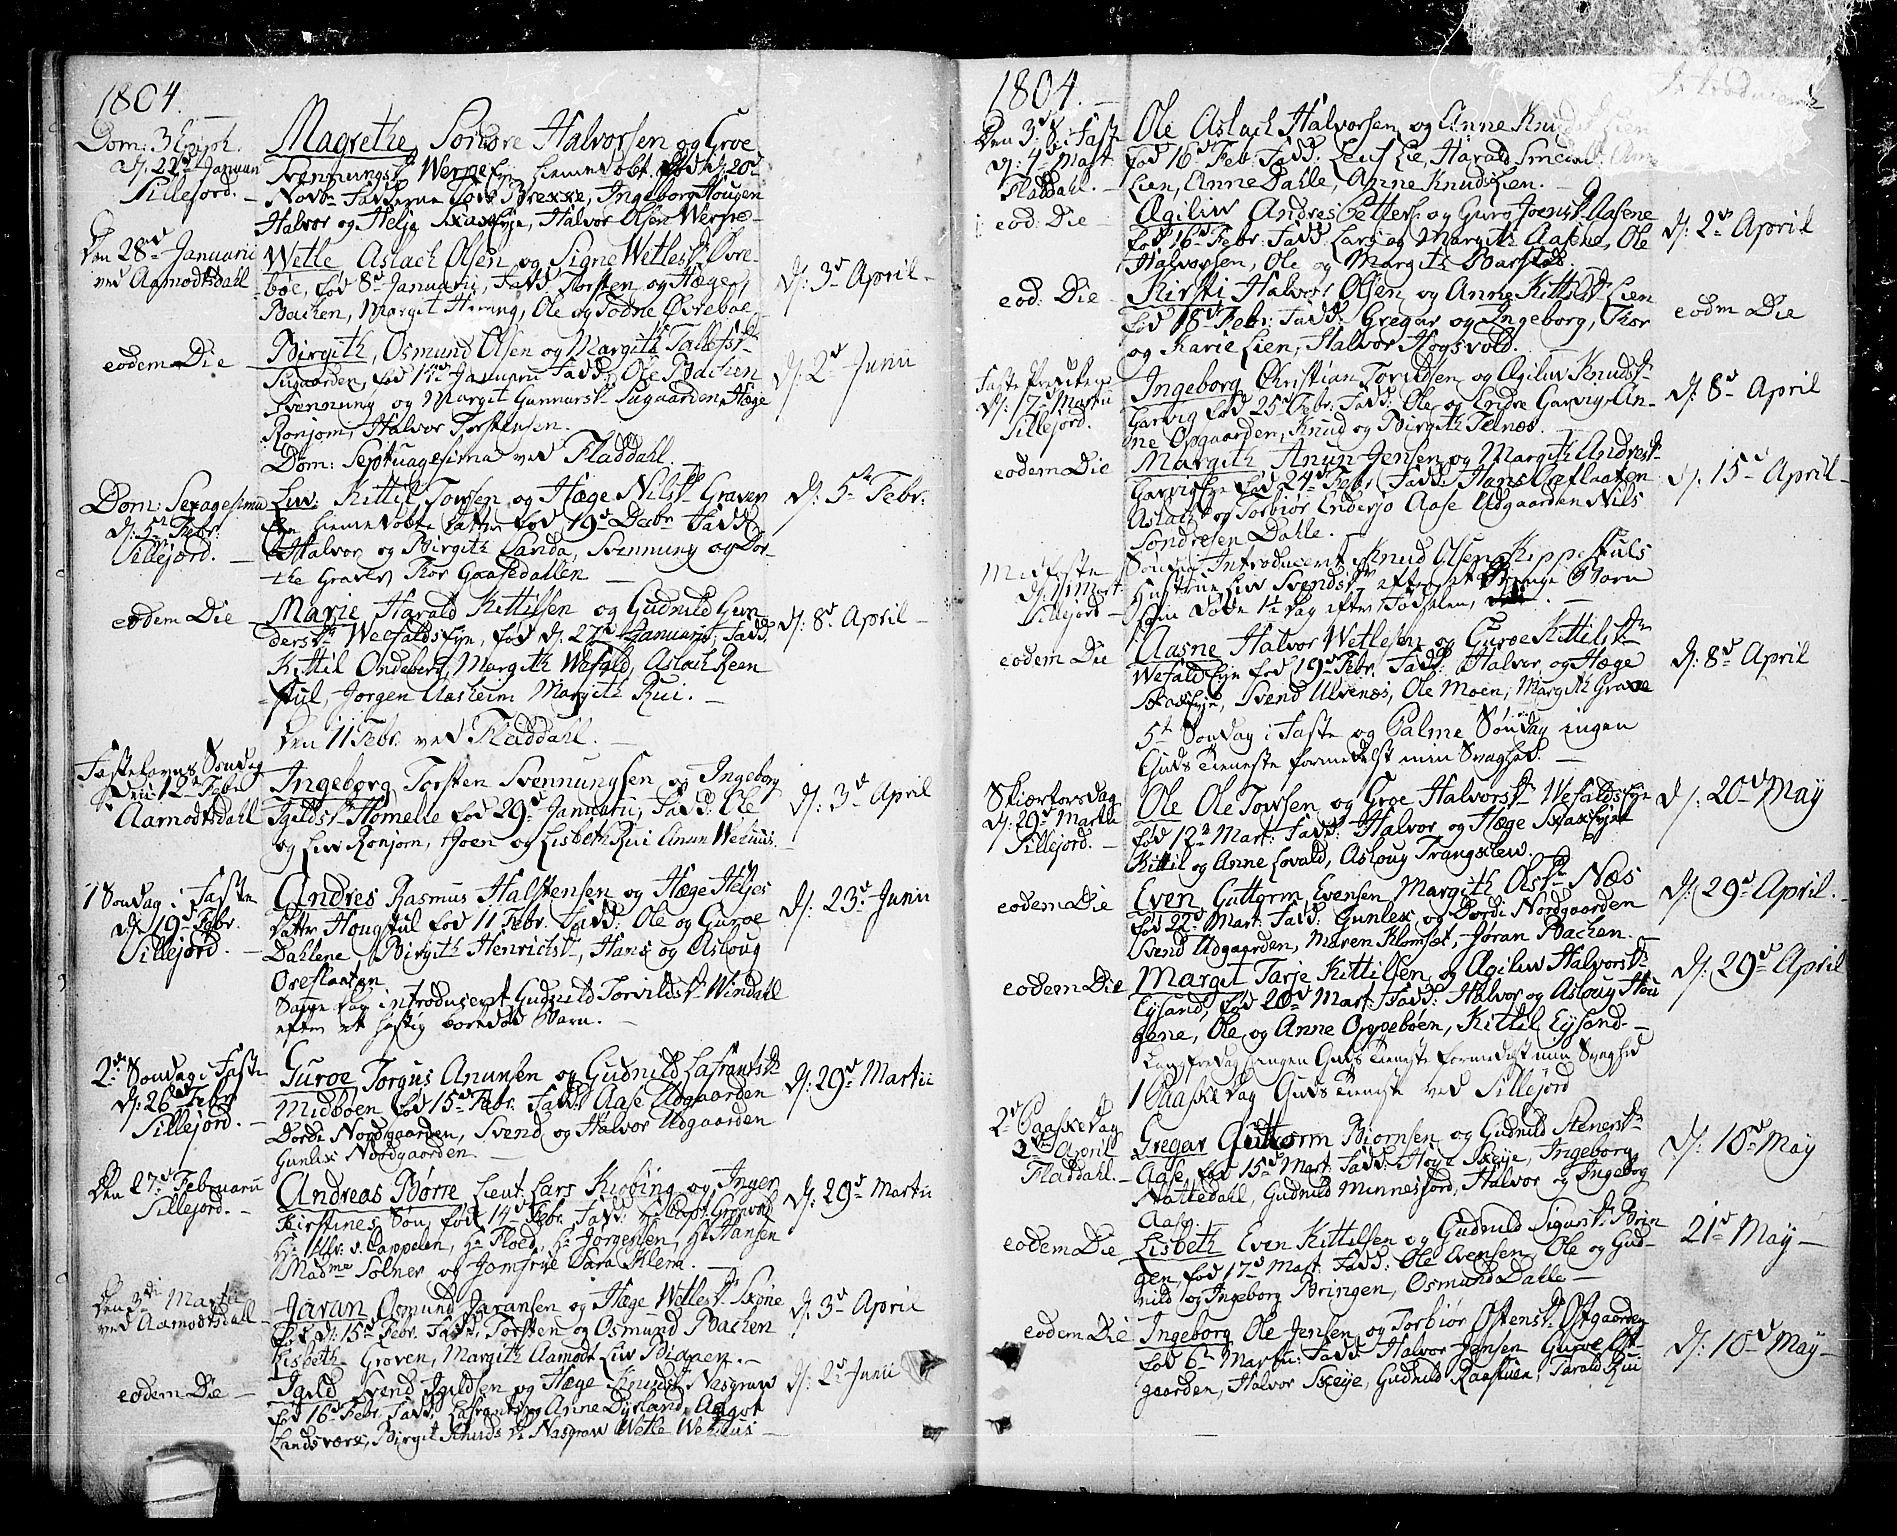 1804.
Dom: 3 Epiph.
d: 22d Januari
Sillejord. –
Magrethe, Sondre Halvorsen og Groe
Svennungsd. Werpe Eje hiemedøbt. fød d: 20d
Novbr Fadderne Tov Brekke, Ingeborg Hougen
Halvor og Helje Skaxeje, Halvor Olsen Werpe –
Den 28de Januarii
ved Aamodtsdahl
Wetle Aslach Olsen og Signe Wetlesdr Øvre-
bøe, fød 8d Januarii, Fadd: Torsten og Hæge
Bachen, Margit, Ole og Todne Øvreboe
d: 3d April –
eodem Die –
Birgith, Osmund Olsen og Margith Tallefsdr
Sugaarden, fød Januarii Fadd: Ole Bachen
Svennung og Margit Gunnarsdr Sugaarden, Hæge
Ronjom, Halvor Torstensen.
d: 2d Junii
Dom: Septuagesima ved Fladdahl.
Dom: Sexagesima
d: 5te Febr:
Sillejord. –
Liv. Kittil Tovsen og Hæge Nilsdr Graven
Eje hiemedøbte Datter fød 19d Decbr Fadd:
Halvor og Birgith Landa, Svennung og Dor-
the Graven Thor Gaasedallen –
d: 5te Febr.
eodem Die –
Marie Harald Kittilsen og Gudnild Gun
dersdr Weefalds Eje, fød d: 27d Januarii, Fadd:
Kittil Ondeberg, Margith Wefald, Aslach Reen
stul, Jorgen Aasheim Margith Rui. –
d: 8d April –
Den 11 Febr. ved Fladdahl. –
Fastelavns Søndag
den 12te Febr
Aamodtsdahl
Ingeborg Torsten Svennungsen og Ingeborg
Igildsdr Homelie fød 29d Januarii, Fadd: Ole
og Liv Ronjom, Joen og Lisbeth Rui Anun Wehuus.
d: 3d April
1 Søndag i Faste
d: 19d Febr.
Sillejord. –
Andres Rasmus Halstensen og Hæge Heljes
datter Hougstul fød 11 Febr. Fadd: Ole og Guroe
Dahlene, Birgith Henrichsdr, Hans og Asloug
Oreflaaten
d: 23d Junii
Samme dag introduceret Gudnild Torvildsdr Windahl
efter et hastig bortdød Barn. –
2den Søndag i Faste
d: 26d Febr
Sillejord. –
Guroe Torgus Anunsen og Gudnild Lafrantsdr
Midbøen fød 15d Febr. Fadd: Aase Udgaarden
Dordi Nordgaarden, Svend og Halvor Udgaarden
Gunlex Nordgaarden –
d: 29d Martii
Den 27d Februarii
Sillejord. –
Andreas Børre Lieut. Lars Kiøbing og Inger
Kirstines Søn, fød 14d Febr. Fadd: Capt. Grønvold
Hr v. Cappelen, Hr Floed, Hr Jørgensen, Hr Hansen
Madme Solner og Jomfrue Sara Klem. –
d: 29d Martii
Den 3die Martii
ved Aamodtsdahl
Jøran Asmund Jøransen og Hæge Wetlesdr Skone
fød d: 15d Febr. Fadd: Torsten og Osmund Bachen
Lisbeth Groven, Margith Aamodt Liv Bidnen. –
d: 3d April
eodem Die –
Igild Svend Igildsen og Hæge Nasgrav
fød 16d Febr. Fadd: Lafrants og Anne Dyrland, Aagot
Landsværk, Birgit Nasgrav Wetle Wehuus –
d: 2d Junii
1804. –
Introducerede
Den 3d S. i Fast
d: 4d Mart.
Fladdahl. –
Ole Aslach Halvorsen og Anne Knuds Lien
fød 16d Feb. Fadd: Leif Lie, Harald
Lien, Anne Dahle, Anne Knuds Lien. –
eod: Die –
Ægiliw Andres Pettersen og Guro Joensdr Aasene
fød 16d Febr. Fadd: Lars og Margith Aasene, Ole
Halvorsen, Ole og Margith Barstad.
d: 2d April
eod: Die –
Kirsti Halvor Olsen og Anne Kittilsdr Lien
fød 18d Febr: Fadd: Gregar og Ingeborg, Thor
og Karie Lien, Halvor Hogsvold.
eodm Die
d: 17d Martii
Sillejord.
Ingeborg Christian Torvildsen og Ægiliw Knudsdr
Garvig fød 25d Febr. Fadd: Ole og Endre Garvig, An-
ne Opgaarden, Knud og Birgith Telnæs.
d: 8d April
eodem Die
Margith, Anun Jensen og Margith Andresdr
Garvigs Eje fød 24d Febr Fadd: Hans Oreflaaten
Aslach og Torbiør Enderjo Aase Udgaarden Nils
Sondresen Dahle. –
d: 15d April –
Midfaste
d: 11 Mart
Sillejord –
Søndag Introduceret Knud Olsen Kippestuls
Hustrue Liv Svendsdr efter et Drenge Barn
som døde 1½ dag efter Fødselen, –
eodem Die
Aasne Halvor Wetlesen og Guroe Kittilsdr
Wefald Eje fød 19d Febr. Fadd: Halvor og Hæge
Skaxeje, Svend Ulvenæs, Ole Moen, Margith Grave
d: 8d April
5te Søndag i Faste og Palme Søndag ingen
Guds Tieneste formedelst min Svaghed. –
Skiertorsdag
d: 29d Martii
Sillejord. –
Ole Ole Tovsen og Groe Halvorsdr Wefalds Eje
fød 12te Mart: Fadd: Halvor og Hæge Skaxeje
Kittil og Anne Lovald, Asloug Trangxlev.
d: 20d May
eodem Die
Even Guttorm Evensen Margith Olsdr Næs
fød 22d Mart. Fadd: Gunlex og Dordi Nordgaarden
Svend Udgaarden, Maren Klomset, Jøran Bachen.
d: 29d April.
eodem Die
Margit Tarje Kittilsen og Ægiliw Halvorsdr
Eysand, fød 20d Mart: Fadd: Halvor og Asloug Hou
gene, Ole og Anne Oppebøen, Kittil Eysand. –
d: 29d April
Langfredag ingen Guds Tieneste formedelst min Svaghed
1 Paaske Dag Guds Tieneste ved Sillejord
2den Paaske Dag
2d April
Fladdahl. –
Gregar Guttorm Biornsen og Gudnild Stenersdr
Aase fød 15d Mart. Fadd: Hoye Skeje, Ingeborg
Nattedahl, Gudnild Minnesjord, Halvor og Ingeborg
Aase.
d: 10d May
eodem Die
Lisbeth Even Kittilsen og Gudnild Sigursdr Brin
gen fød 17d Mart. Fadd: Ole Evensen, Ole og Gud-
nild og Ingeborg Bringen, Osmund Dalle –
21d May –
eodem Die
Ingeborg Ole Jensen og Torbiør Ostensdr Ostgaarden
fød 6te Martii: Fadd: Halvor Jensen Guroe Ost-
gaarden, Halvor Skeye, Gudnild Raastuen, Tarald Rui
d: 10d May –